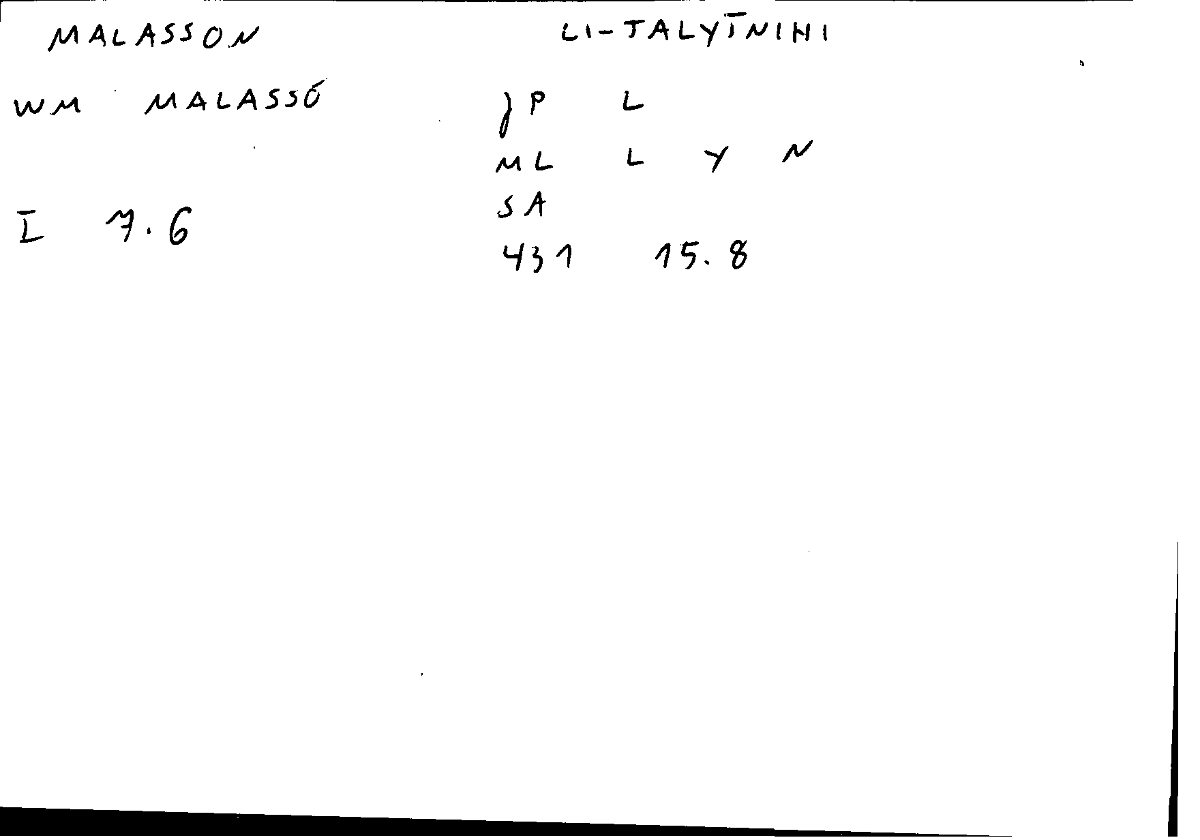 MALASSON LI-TALYĪNIHI
WM MALASSÓ JP L
ML L Y N
SA
I 7.6
431 15.8